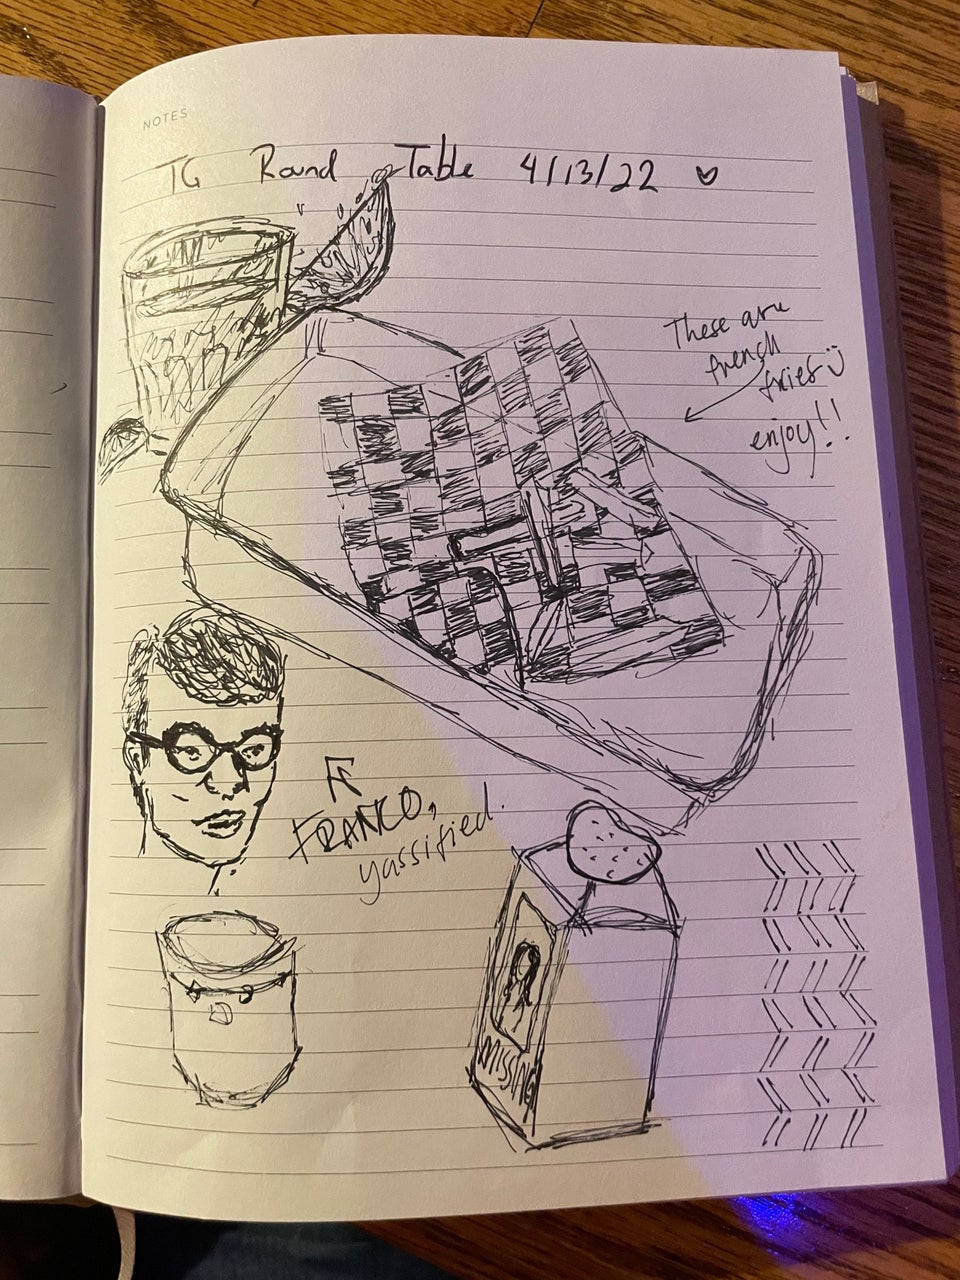 NOTES
TG Round Table 4/13/22 ♡
These are
french
fries :)
enjoy!!
FRANCO,
yassified.
MISSING